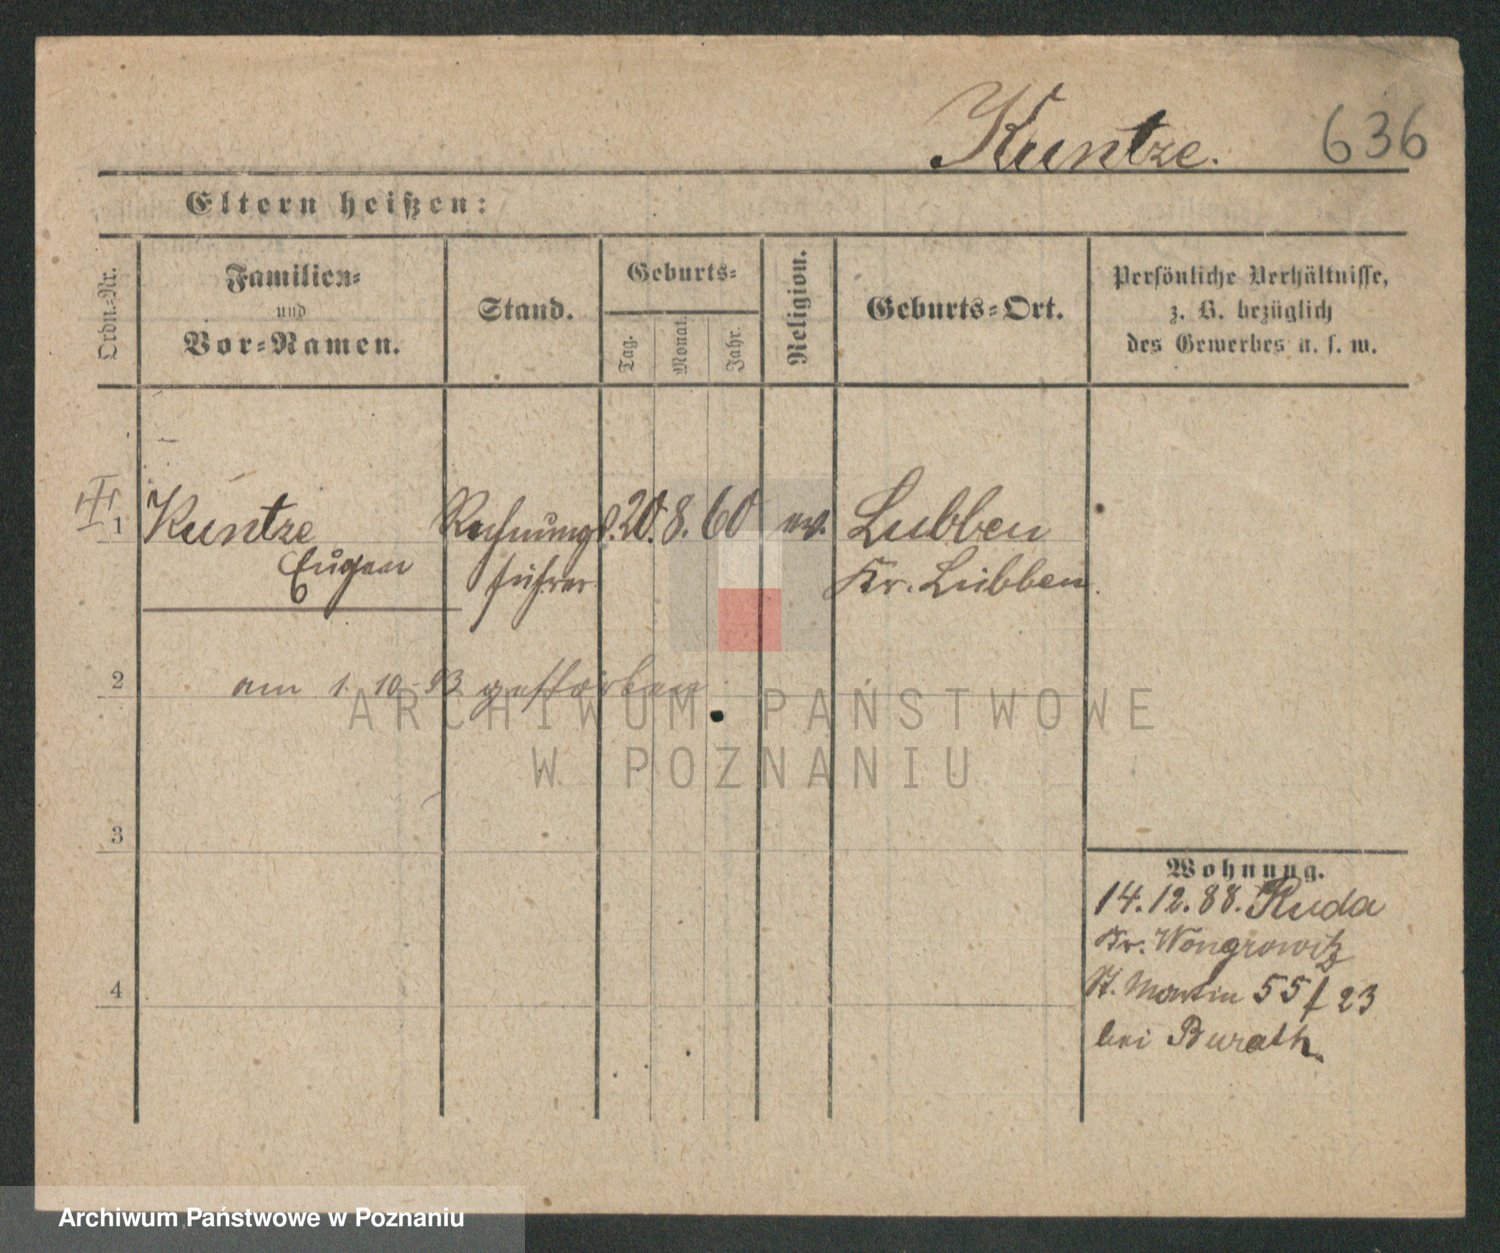 Kuntze. 636
Eltern heißen:
Ordn.-Nr.
Familien-
und
Vor-Namen.
Stand.
Geburts-
Tag.
Monat.
Jahr.
Religion.
Geburts-Ort.
Persönliche Verhältnisse,
z. B. bezüglich
des Gewerbes u. s. w.
1 Kuntze Rechnungs 20. 8. 60 ev. Lubben
Eugen führer Kr. Lübben.
2 am 1. 10. 93 gestorben
ARCHIWUM PAŃSTWOWE
W POZNANIU
3
Wohnung.
14. 12. 88. Ruda
Kr. Wongrowitz
4
St. Martin 55/23
bei Burath.
Archiwum Państwowe w Poznaniu